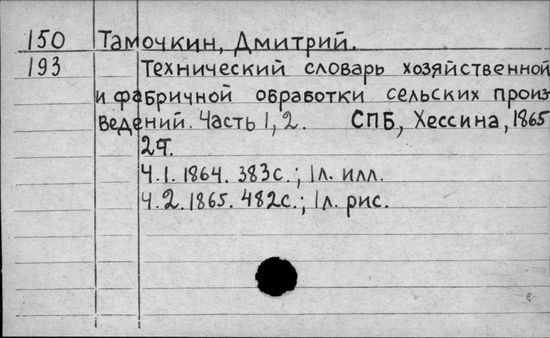 150 Тамочкин, Дмитрий.
193 Технический словарь хозяйственной
и фабричной обработки сельских произ
ведений. Часть 1, 2. СПБ, Хессина, 1865
2т.
Ч.1. 1864. 383с.; 1л. илл.
Ч.2. 1865. 482с.; 1л. рис.